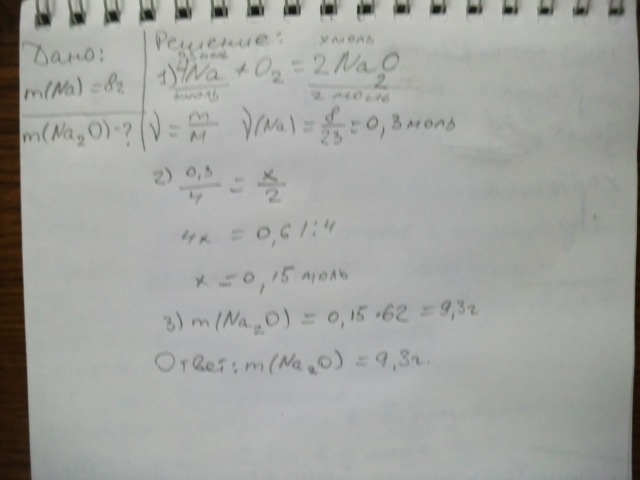 Дано:
m(Na) = 8г
m(Na₂O) - ?
Решение:
x моль
1) 4Na + O₂ = 2Na₂O
4 моль 2 моль
ν = m/M ν(Na) = 8/23 = 0,3 моль
2) 0,3/4 = x/2
4x = 0,6 / : 4
x = 0,15 моль
3) m(Na₂O) = 0,15 • 62 = 9,3г
Ответ: m(Na₂O) = 9,3г.